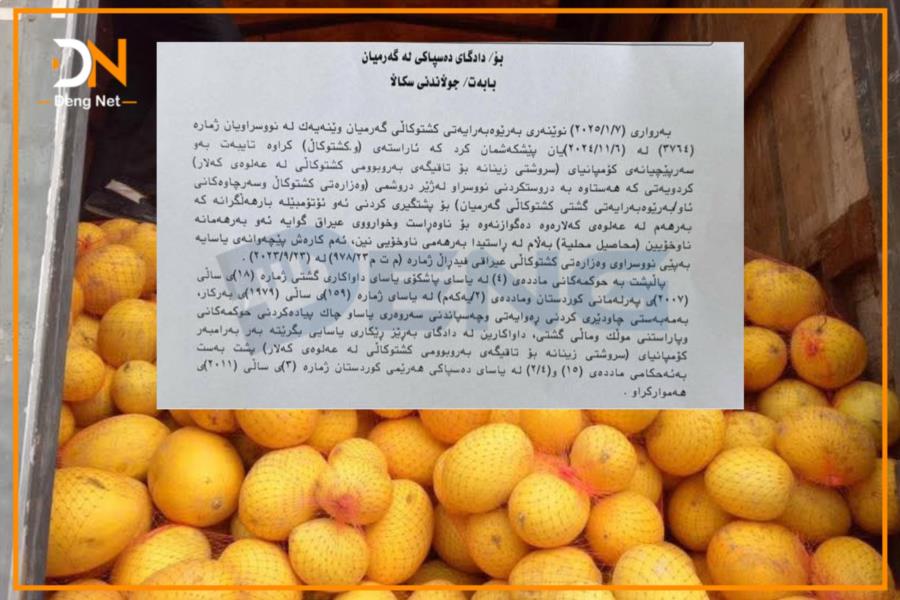 DN
Deng Net
بۆ/ دادگای دەسپاکی لە گەرمیان
بابەت/ جوڵاندنی سکاڵا
بەرواری (٢٠٢٥/١/٧) نوێنەری بەرێوەبەرایەتی کشتوکاڵی گەرمیان وێنەیەك لە نووسراویان ژمارە
(٣٧٦٤) لە (٢٠٢٤/١١/٦)یان پێشکەشمان کرد کە ئاراستەی (و.کشتوکاڵ) کراوە تایبەت بەو
سەرپێچیانەی کۆمپانیای (سروشتی زینانە بۆ تاقیگەی بەروبوومی کشتوکاڵی لە عەلوەی کەلار)
کردویەتی کە هەستاوە بە دروستکردنی نووسراو لەژێر دروشمی (وەزارەتی کشتوکاڵ وسەرچاوەکانی
ئاو/بەرێوەبەرایەتی گشتی کشتوکاڵی گەرمیان) بۆ پشتگیری کردنی ئەو ئۆتۆمبێلە بارهەڵگرانە کە
بەرهەم لە عەلوەی کەلارەوە دەگوازنەوە بۆ ناوەڕاست وخوارووی عیراق گوایە ئەو بەرهەمانە
ناوخۆیین (محاصیل محلیة) بەڵام لە ڕاستیدا بەرهەمی ناوخۆیی نین، ئەم کارەش پێچەوانەی یاسایە
بەپێی نووسراوی وەزارەتی کشتوکاڵی عیراقی فیدراڵ ژمارە (م ت م ٩٧٨/٢٣) لە (٢٠٢٣/٩/٢٣) .
پاڵپشت بە حوکمەکانی ماددەی (٤) لە یاسای پاشکۆی یاسای داواکاری گشتی ژمارە (١٨)ی ساڵی
(٢٠٠٧)ی پەرلەمانی کوردستان وماددەی (٢/یەکەم) لە یاسای ژمارە (١٥٩)ی ساڵی (١٩٧٩)ی بەرکار،
بەمەبەستی چاودێری کردنی ڕەوایەتی وچەسپاندنی سەروەری یاساو چاك پیادەکردنی حوکمەکانی
وپاراستنی موڵك وماڵی گشتی، داواکارین لە دادگای بەرێز رێکاری یاسایی بگرێتە بەر بەرامبەر
کۆمپانیای (سروشتی زینانە بۆ تاقیگەی بەروبوومی کشتوکاڵی لە عەلوەی کەلار) پشت بەست
بەئەحکامی ماددەی (١٥) و(٢/٤) لە یاسای دەسپاکی هەرێمی کوردستان ژمارە (٣)ی ساڵی (٢٠١١)ی
هەموارکراو .
DENG